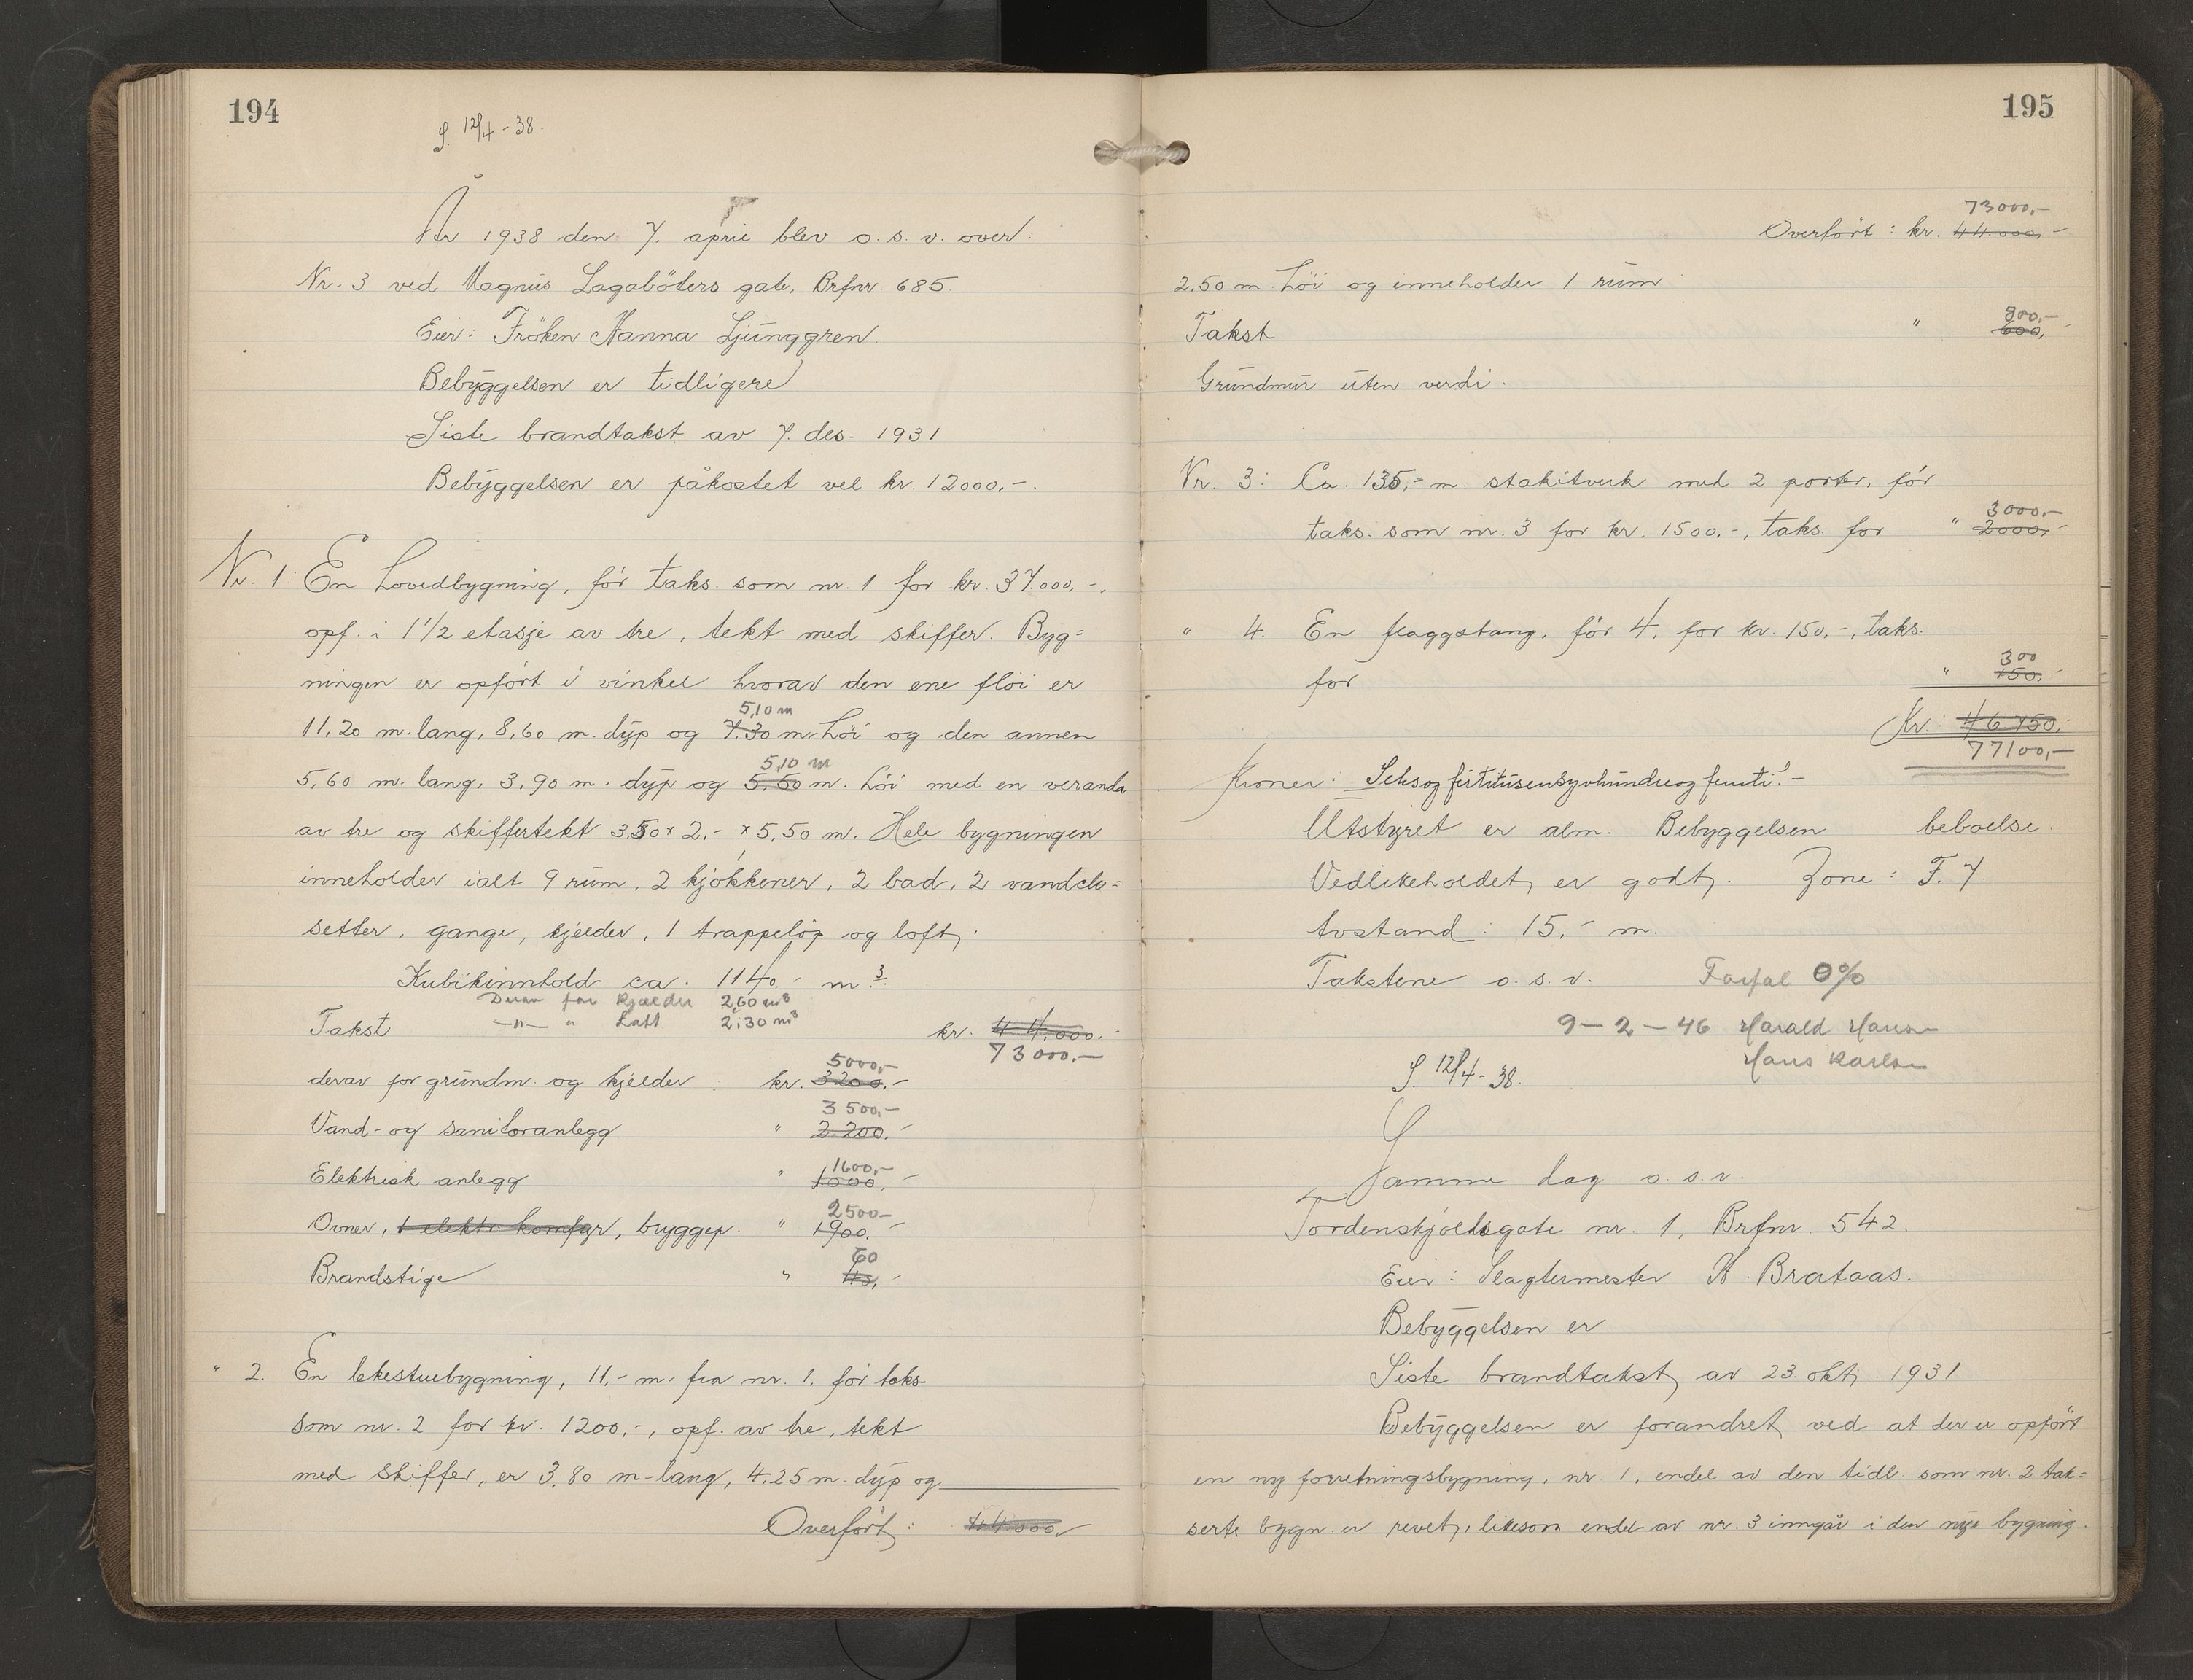 194
S. 12/4-38.
År 1938 den 7. april blev o. s. v. over:
Nr. 3 ved Magnus Lagabøters gate, Brfnr. 685
Eier: Frøken Nanna Ljunggren.
Bebyggelsen er tidligere
Siste brandtakst av 7. des. 1931
Bebyggelsen er påkostet vel kr. 12000,-.
Nr. 1: En hovedbygning, før taks. som nr. 1 for kr. 37.000,-,
opf. i 1 1/2 etasje av tre, tekt med skiffer. Byg=
ningen er opført i vinkel hvorav den ene fløi er
5,10 m
11,20 m. lang, 8,60 m. dyp og 7.30 m. høi og den annen
5,10 m
5,60 m. lang, 3,90 m. dyp og 5.50 m. høi med en veranda
av tre og skiffertekt 3.50 x 2,- x 5,50 m. Hele bygningen
inneholder ialt 9 rum, 2 kjøkkener, 2 bad, 2 vandclo=
setter, gange, kjelder, 1 trappeløp og loft.
Kubikinnhold ca. 1140.- m3.
Derav for kjælder 2,60 m3
Takst —"— " Loft 2,30 m3 kr. 44.000.-
73000,-
5000,-
derav for grundm. og kjelder kr. 3200.-
3500,-
Vand- og sanitæranlegg " 2.200.-
1600,-
Elektrisk anlegg " 1000.-
2500-
Ovner, 1 elektr. komfyr, bryggep. " 1900.-
60
Brandstige " 40,-
" 2. En lekestuebygning, 11,- m. fra nr. 1, før taks
som nr. 2 for kr. 1200,-, opf. av tre, tekt
med skiffer, er 3,80 m. lang, 4.25 m. dyp og
Overført: 44.000,
195
73000,-
Overført: kr. 44.000,-
2.50 m. høi og inneholder 1 rum
800,-
Takst " 600,-
Grundmur uten verdi.
Nr. 3: Ca. 135,- m. stakitverk med 2 porter, før
3000,-
taks. som nr. 3 for kr. 1500.-, taks. for " 2000,-
" 4. En flaggstang, før 4, for kr. 150,-, taks.
300
for " 150.-
Kr. 46.750.-
77100,-
Kroner: Seksogfirtitusensyvhundreogfemti.-
Utstyret er alm. Bebyggelsen beboelse.
Vedlikeholdet er godt. Zone: F. 7
Avstand: 15,- m.
Takstene o. s. v. Forfal 0%
9-2-46 Harald Hansen
Hans Karlsen
S. 12/4-38.
Samme dag o. s. v.
Tordenskjoldsgate nr. 1, Brfnr. 542.
Eier: Slagtermester K. Brataas.
Bebyggelsen er
Siste brandtakst av 23. okt. 1931
Bebyggelsen er forandret ved at der er opført
en ny forretningsbygning, nr. 1, endel av den tidl. som nr. 2 tak=
serte bygn. er revet, likesom endel av nr. 3 inngår i den nye bygning.